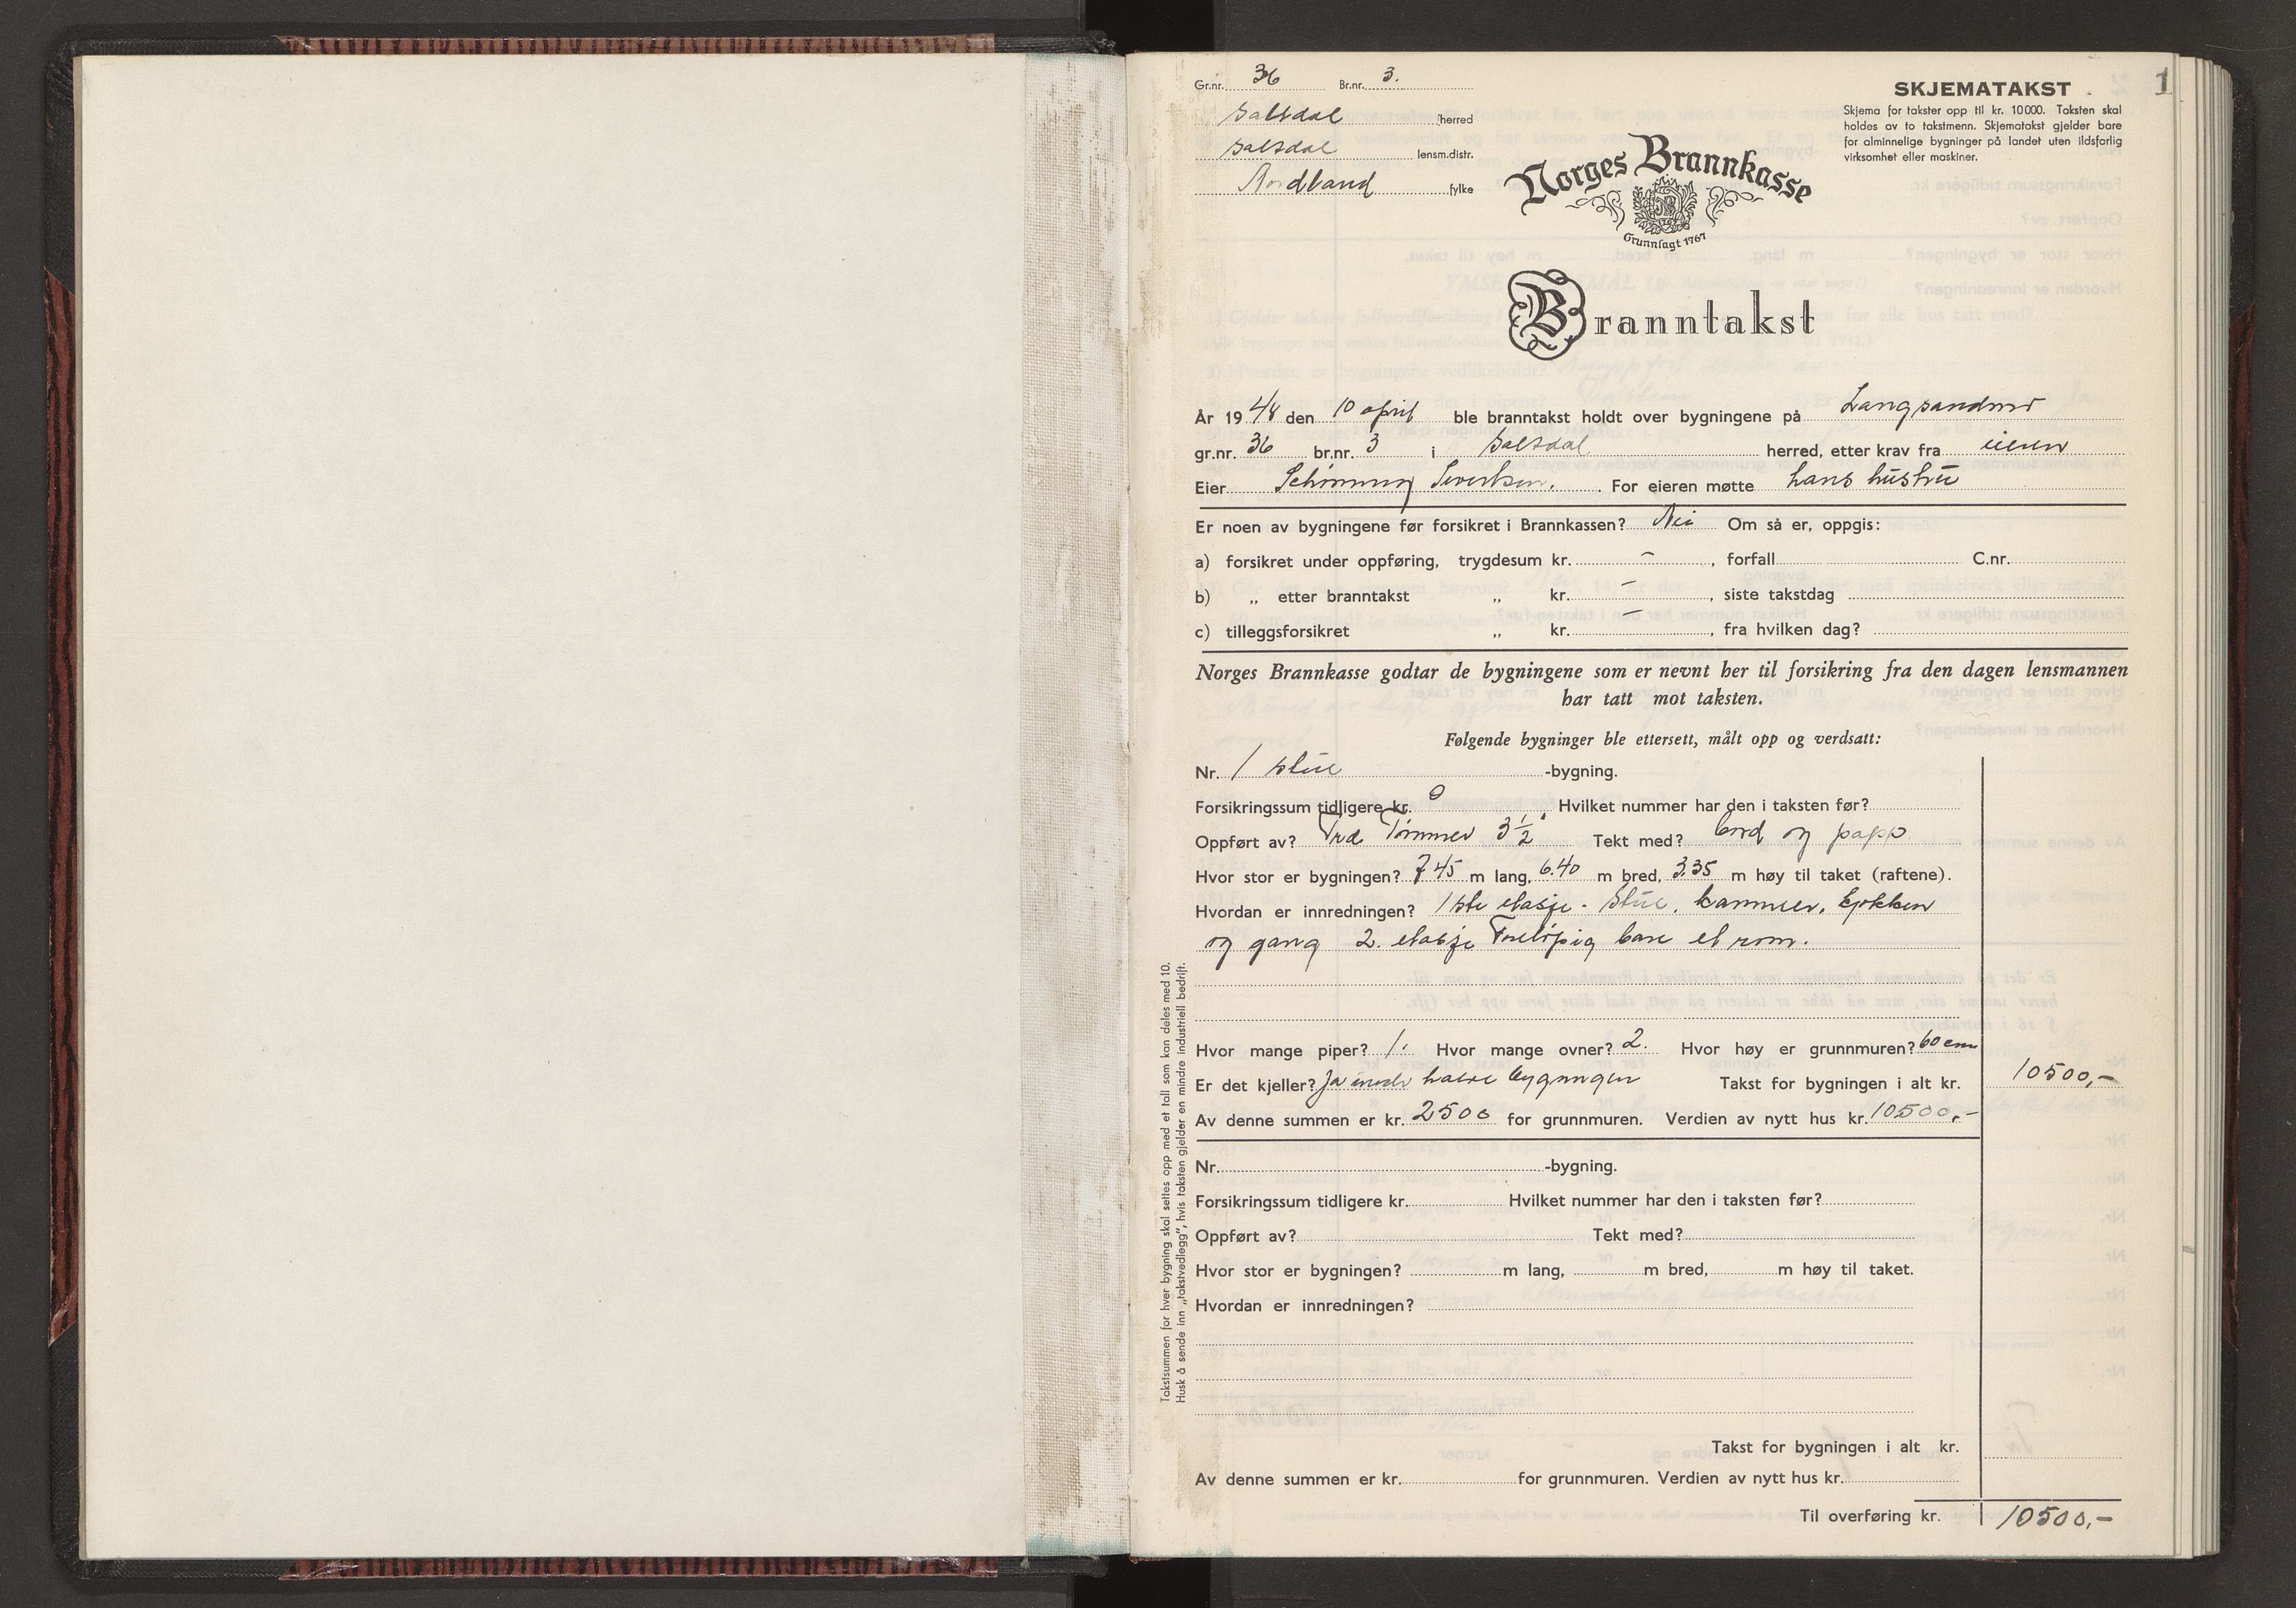 1
Gr.nr. 36 Br.nr. 3.
Saltdal herred
Saltdal lensm.distr.
Nordland fylke
SKJEMATAKST
Skjema for takster opp til kr. 10 000. Taksten skal
holdes av to takstmenn. Skjematakst gjelder bare
for alminnelige bygninger på landet uten ildsfarlig
virksomhet eller maskiner.
Norges Brannkasse
Grunnlagt 1767
Branntakst
År 1948 den 10 april ble branntakst holdt over bygningene på Langsandmo
gr.nr. 36 br.nr. 3 i Saltdal herred, etter krav fra eieren
Eier Schönning Sivertsen. For eieren møtte hans hustru
Er noen av bygningene før forsikret i Brannkassen? Nei Om så er, oppgis:
a) forsikret under oppføring, trygdesum kr. – , forfall C.nr.
b) „ etter branntakst „ kr. – , siste takstdag
c) tilleggsforsikret „ kr. – , fra hvilken dag?
Norges Brannkasse godtar de bygningene som er nevnt her til forsikring fra den dagen lensmannen
har tatt mot taksten.
Følgende bygninger ble ettersett, målt opp og verdsatt:
Nr. 1 stue -bygning.
Forsikringssum tidligere kr. 0 Hvilket nummer har den i taksten før?
Oppført av? Tømmer 3 1/2" Tekt med? bord og papp
Hvor stor er bygningen? 7.45 m lang, 6.40 m bred, 3.35 m høy til taket (raftene).
Hvordan er innredningen? 1ste etasje. Stue, kammer, kjøkken
og gang 2. etasje Foreløpig bare et rom.
Hvor mange piper? 1. Hvor mange ovner? 2. Hvor høy er grunnmuren? 60 cm
Er det kjeller? Ja under halve bygningen Takst for bygningen i alt kr. 10500,-
Av denne summen er kr. 2500 for grunnmuren. Verdien av nytt hus kr. 10500,-
Nr. -bygning.
Forsikringssum tidligere kr. Hvilket nummer har den i taksten før?
Oppført av? Tekt med?
Hvor stor er bygningen? m lang, m bred, m høy til taket.
Hvordan er innredningen?
Takst for bygningen i alt kr.
Av denne summen er kr. for grunnmuren. Verdien av nytt hus kr.
Til overføring kr. 10500,-
Takstsummen for hver bygning skal settes opp med et tall som kan deles med 10.
Husk å sende inn „takstvedlegg", hvis taksten gjelder en mindre industriell bedrift.